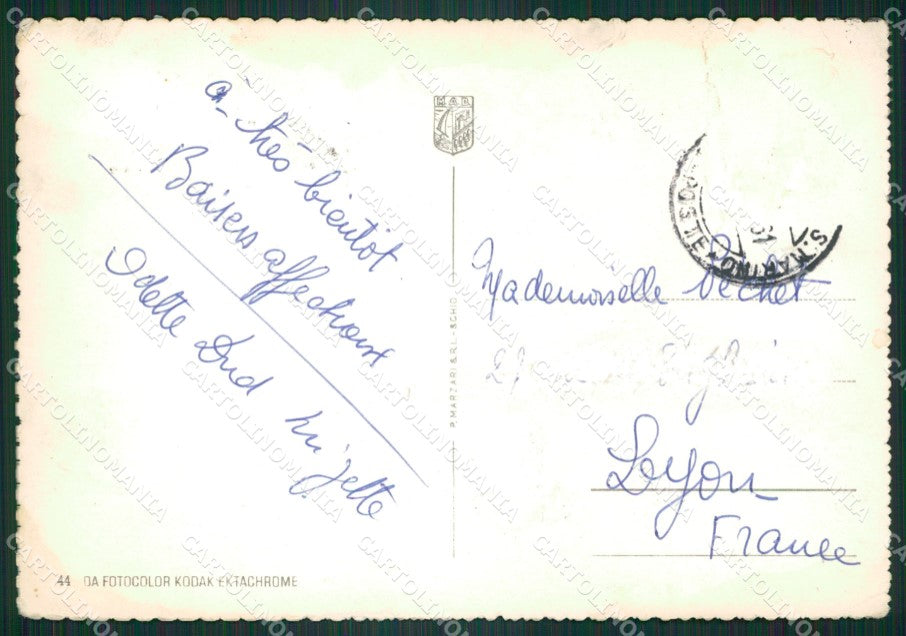 à très bientôt
Baisers affectueux
Odette Dud Mijette
MAR
P. MARZARI S.R.L. - SCHIO
S. MARINO
Mademoiselle
27
Lyon
France
44 DA FOTOCOLOR KODAK EKTACHROME
CARTOLINOMANIA